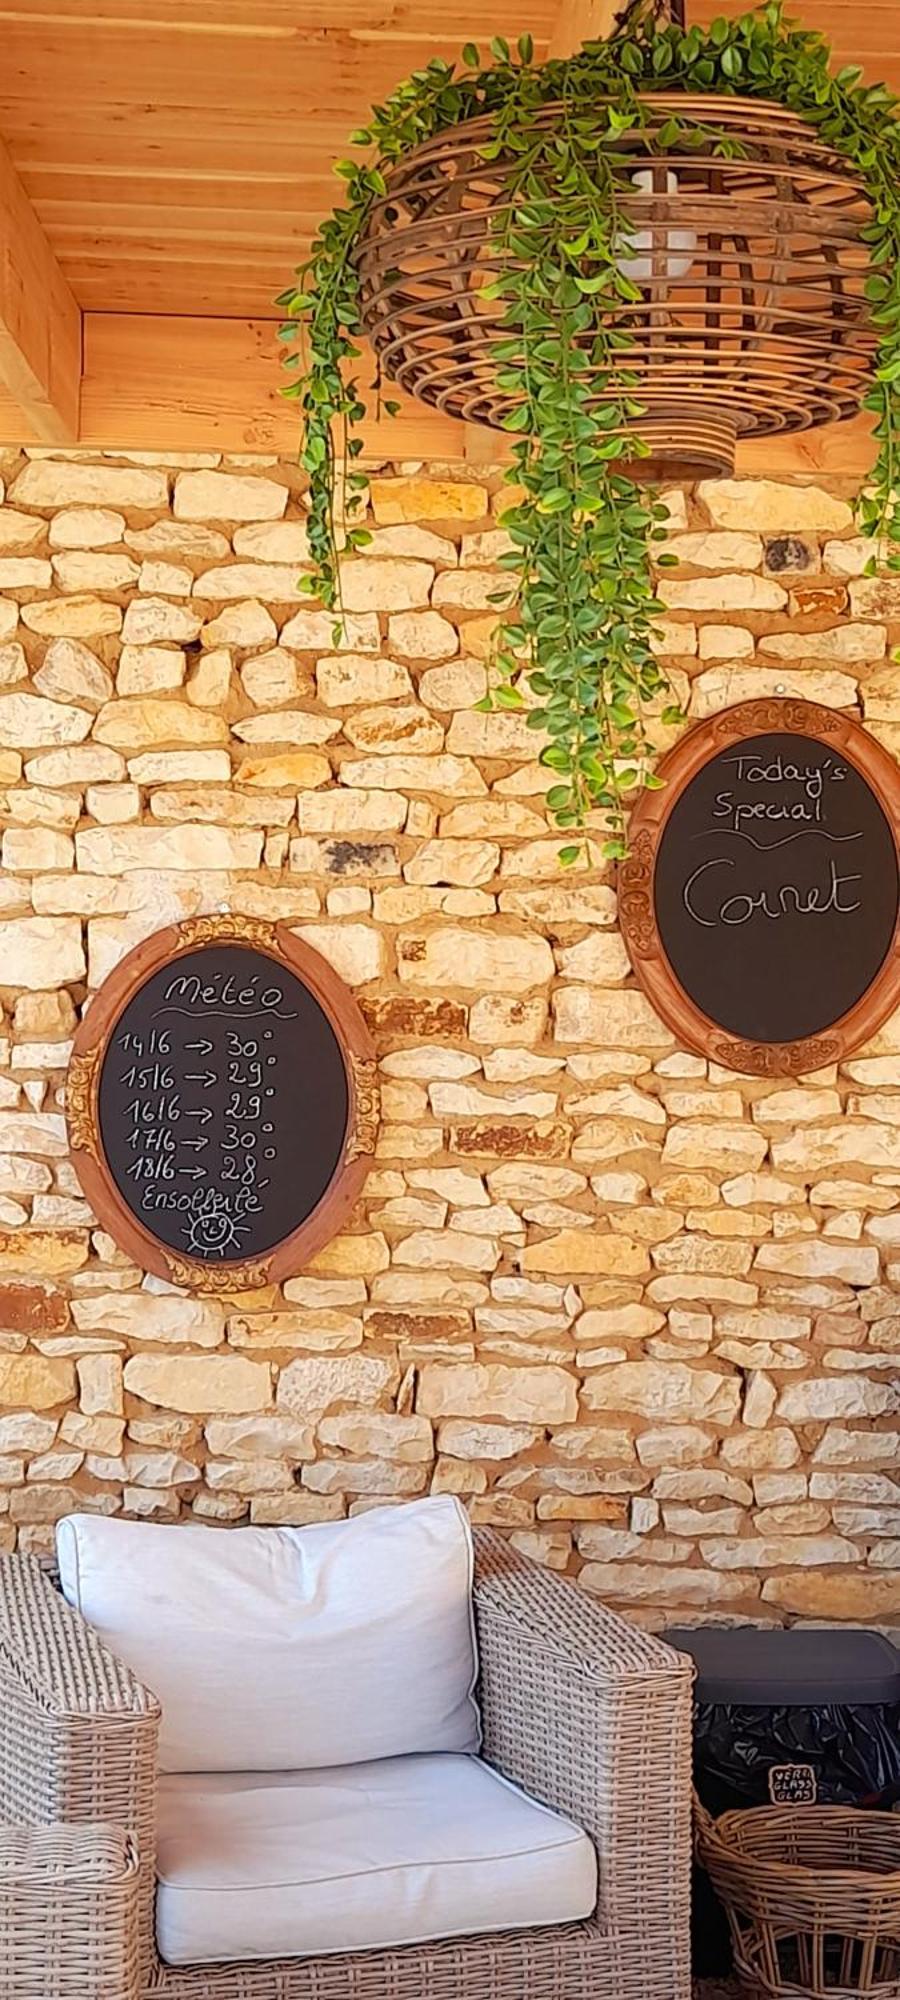 Today's
Special
Cornet
Météo
14/6 → 30°
15/6 → 29°
16/6 → 29°
17/6 → 30°
18/6 → 28°
Ensolleilé
VERRE
GLASS
GLAS